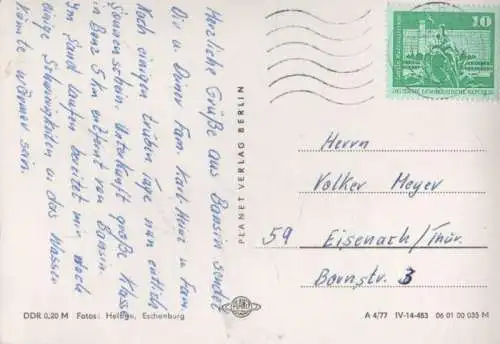 Herzliche Grüße aus Bansin sendet
Dir u. Deiner Fam. Karl-Heinz u. Fam.
Nach einigen trüben Tagen nun endlich
Sonnenschein. Unterkunft große Klasse
in Benz 5 km entfernt von Bansin.
Im Sand laufen bereitet mir noch
einige Schwierigkeiten u. das Wasser
könnte wärmer sein.
DDR 0,20 M Fotos: Hellgn, Eschenburg
PLANET VERLAG BERLIN
10
DEUTSCHE DEMOKRATISCHE REPUBLIK
Herrn
Volker Meyer
59 Eisenach/Thür.
Bornstr. 3
A 4/77 IV-14-483 06 01 00 035 M